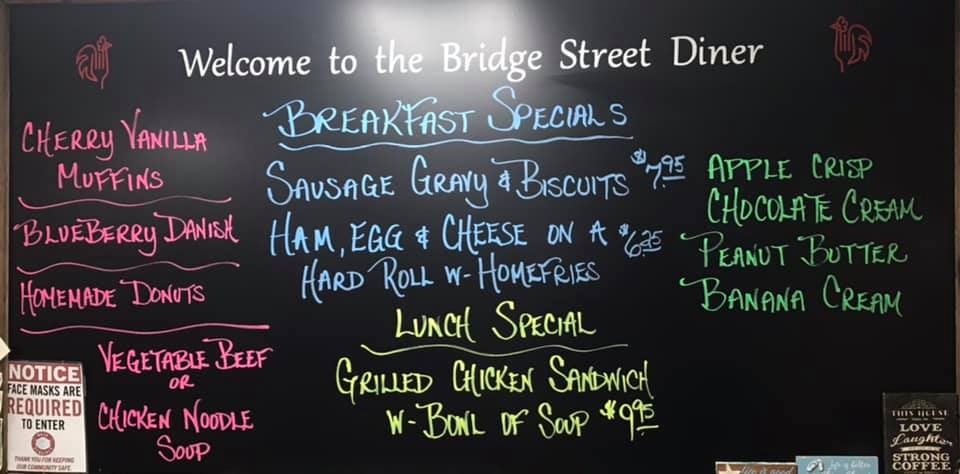 Welcome to the Bridge Street Diner
CHERRY VANILLA
MUFFINS
BLUEBERRY DANISH
HOMEMADE DONUTS
VEGETABLE BEEF
OR
CHICKEN NOODLE
SOUP
BREAKFAST SPECIALS
SAUSAGE GRAVY & BISCUITS $7.95
HAM, EGG & CHEESE ON A $6.25
HARD ROLL W- HOMEFRIES
LUNCH SPECIAL
GRILLED CHICKEN SANDWICH
W- BOWL OF SOUP $9.95
APPLE CRISP
CHOCOLATE CREAM
PEANUT BUTTER
BANANA CREAM
NOTICE
FACE MASKS ARE
REQUIRED
TO ENTER
THANK YOU FOR KEEPING
OUR COMMUNITY SAFE
THIS HOUSE
LOVE
Laughter
STRONG
COFFEE
life is good